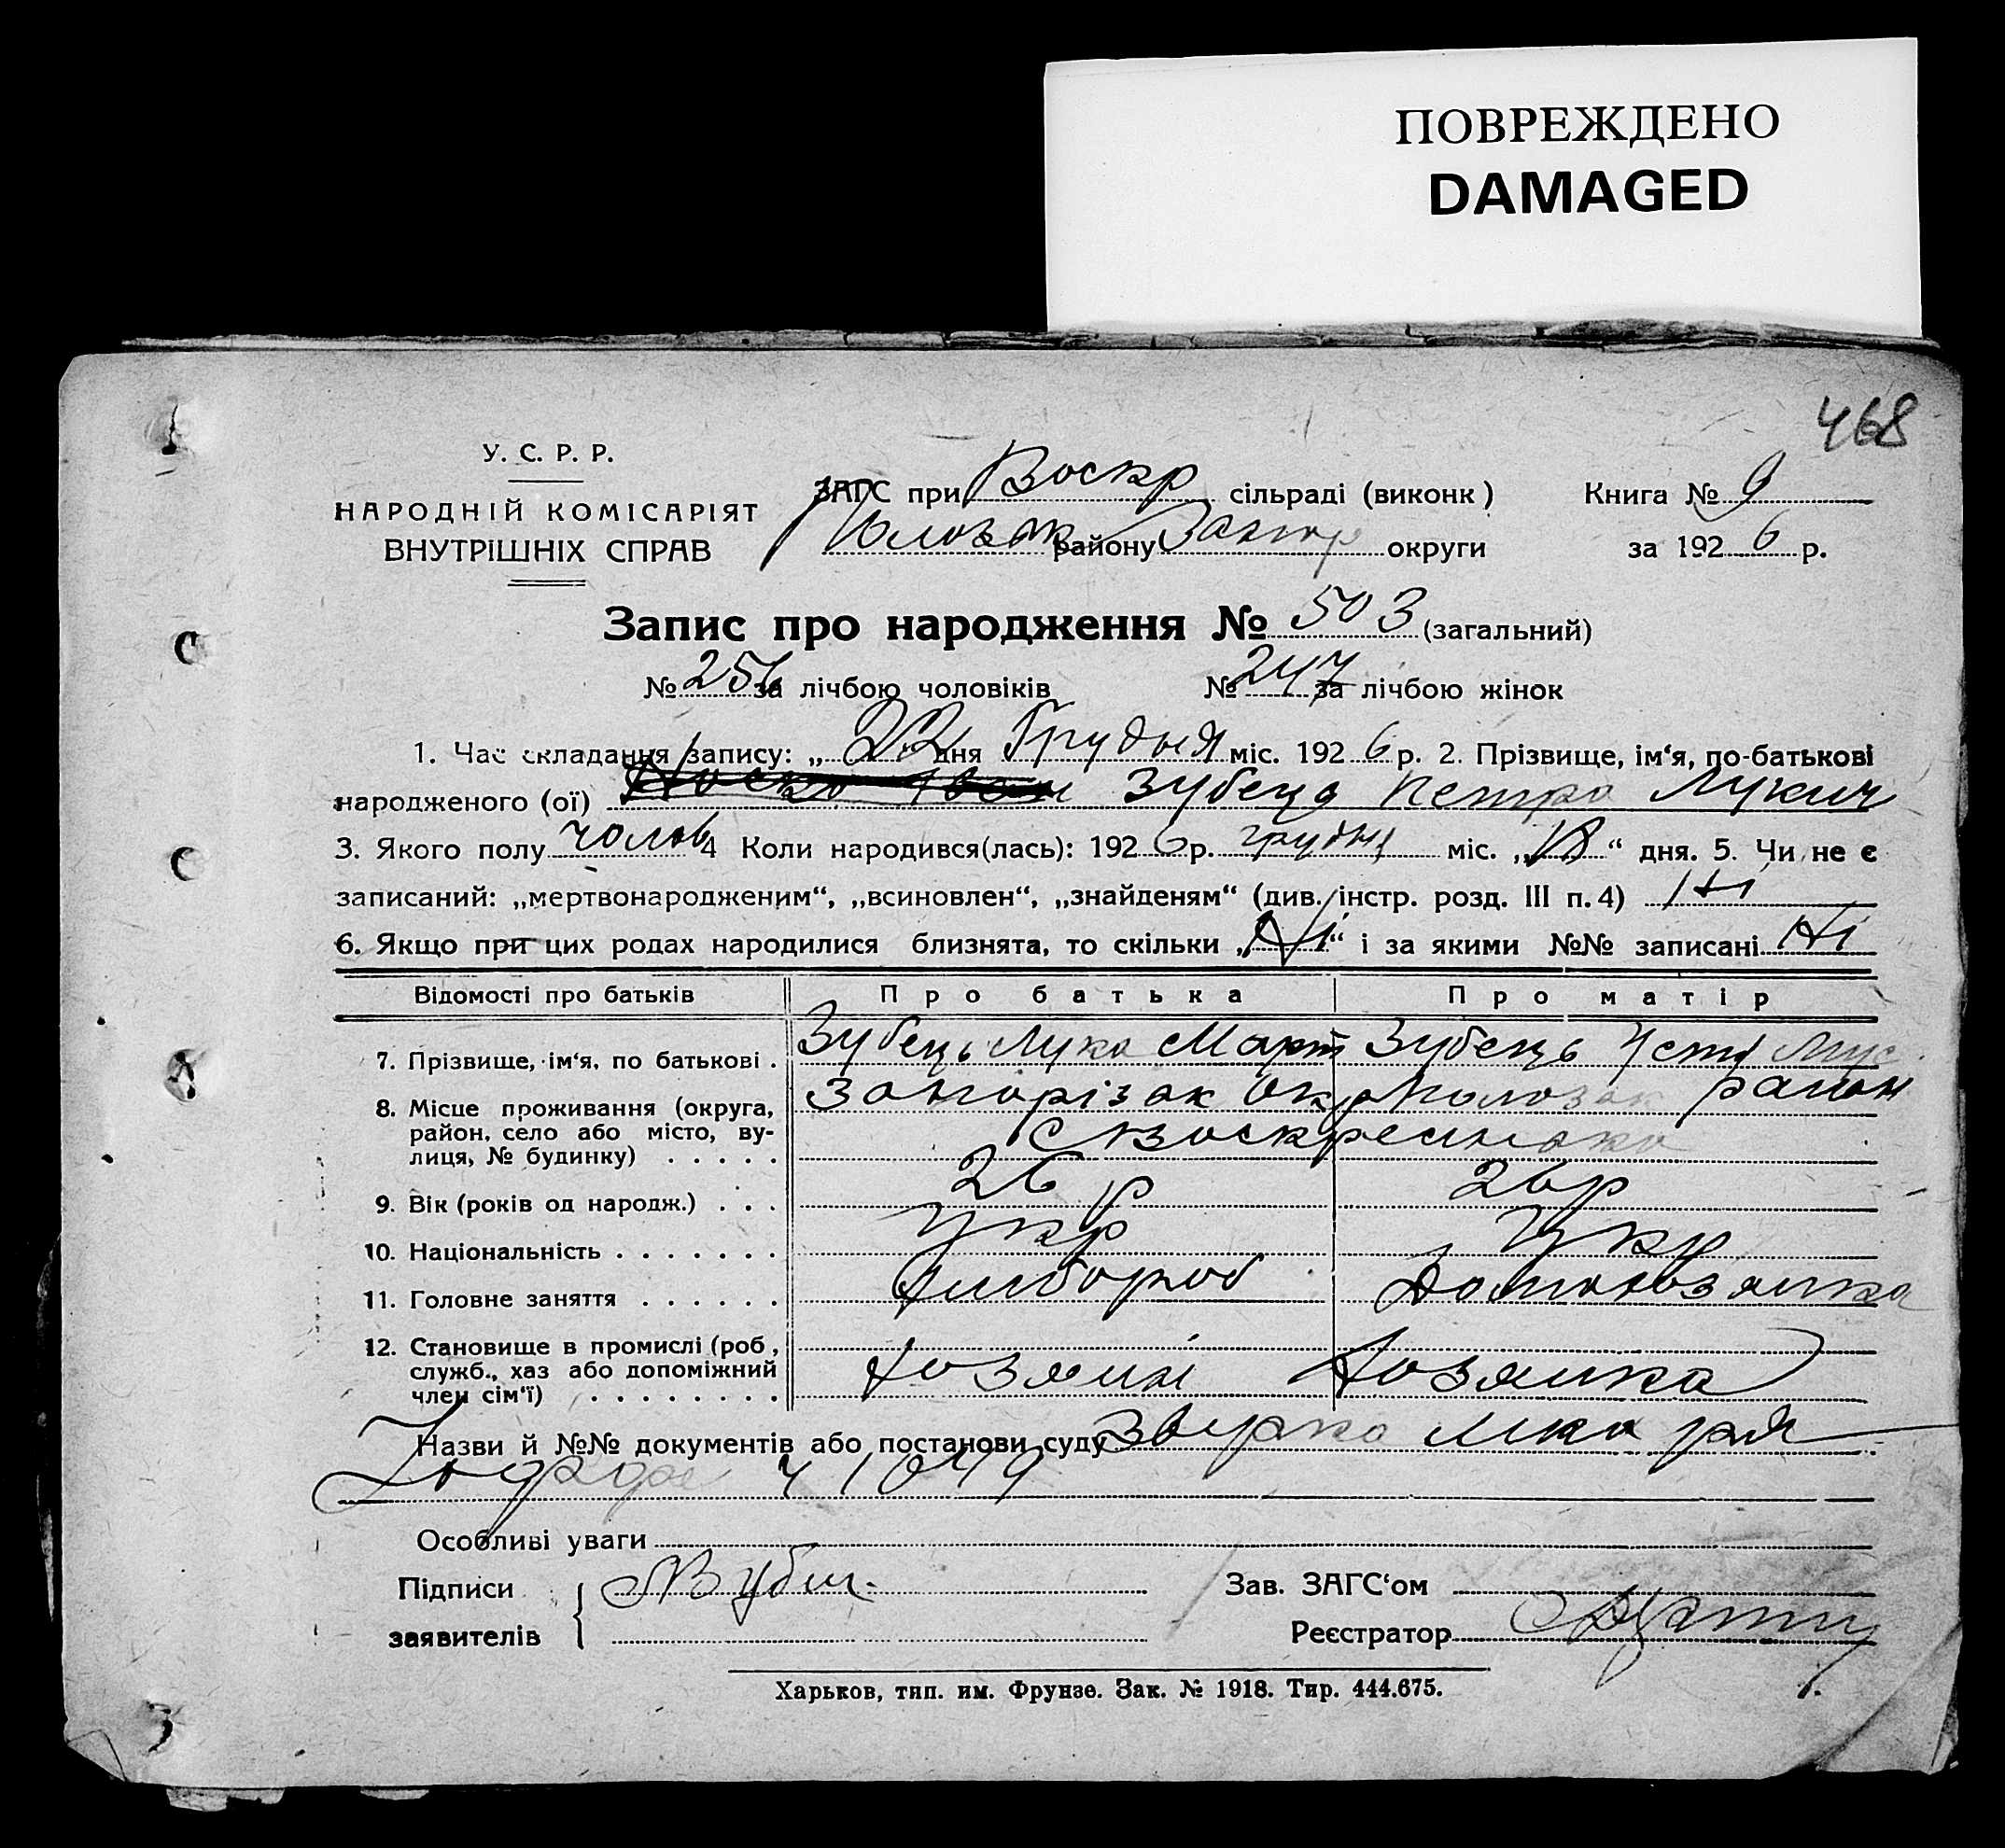 ПОВРЕЖДЕНО
DAMAGED
468
У. С. Р. Р.
НАРОДНІЙ КОМІСАРІЯТ
ВНУТРІШНІХ СПРАВ
ЗАГС при Воскр сільраді (виконк)
району Запор округи
Книга № 9
за 1926 р.
Запис про народження № 503 (загальний)
№ 256 за лічбою чоловіків № 247 за лічбою жінок
1. Час складання запису: „22 дня Грудня міс. 1926 р. 2. Прізвище, ім‘я, по-батькові
народженого (ої) Зубець Петро Лукич
3. Якого полу чолов 4 Коли народився(лась): 1926 р. грудня міс. „18“ дня. 5. Чи не є
записаний: „мертвонародженим“, „всиновлен“, „знайденям“ (див. інстр. розд. III п. 4) Ні
6. Якщо при цих родах народилися близнята, то скільки „Ні“ і за якими №№ записані Ні
Відомості про батьків Про батька Про матір
7. Прізвище, ім‘я, по батькові . Зубець Лука Март Зубець Устя Мус
8. Місце проживання (округа, Запорізьк Окр Пологівськ район
район, село або місто, ву- с Воскресенька
лиця, № будинку) . . . . .
9. Вік (років од народж.) . . . 26 р 26 р
10. Національність . . . . . . . Укр Укр
11. Головне заняття . . . . . . Хлібороб Домохозяйка
12. Становище в промислі (роб,
служб., хаз або допоміжний Хозяин Хозяйка
член сім‘ї) . . . . . . . .
Назви й №№ документів або постанови суду
ч 1049
Особливі уваги
Підписи Зав. ЗАГС‘ом
заявителів Реєстратор
Харьков, тип. им. Фрунзе. Зак. № 1918. Тир. 444.675.